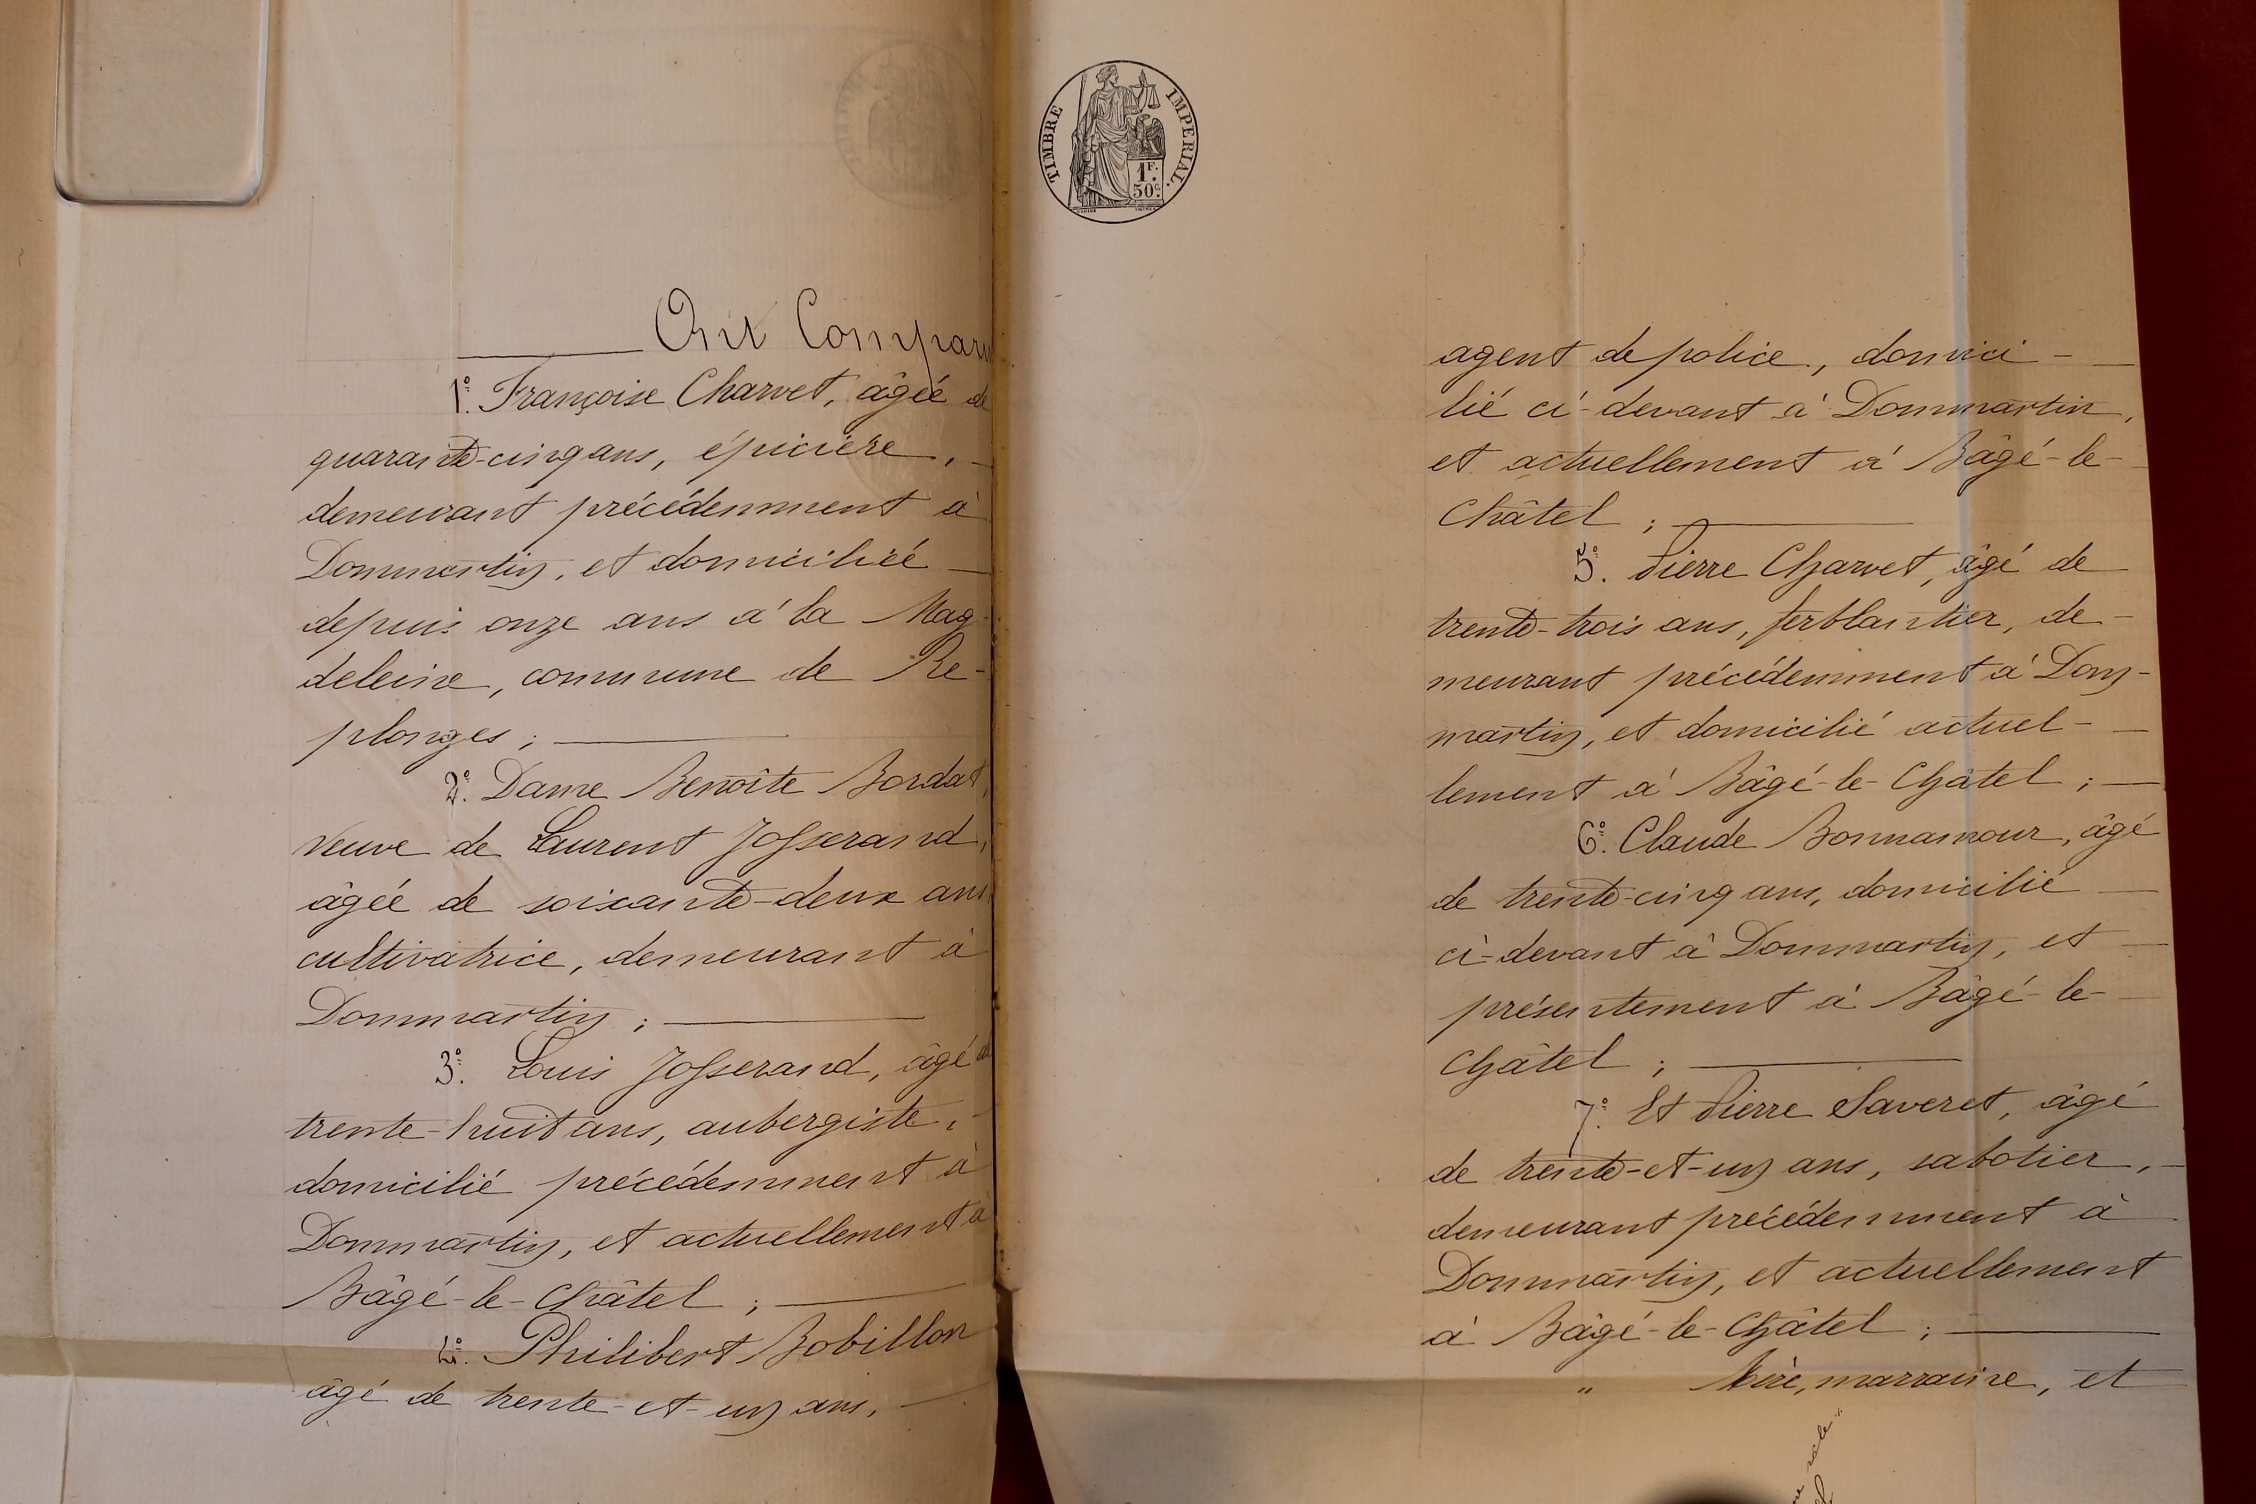 Ont Comparu
1º. Françoise Charvet, âgée de
quarante-cinq ans, épicière, —
demeurant précédemment à
Dommartin, et domiciliée —
depuis onze ans à la Mag-
deleine, commune de Re-
plonges ; —
2º. Dame Benoîte Bordat,
veuve de Laurent Josserand,
âgée de soixante-deux ans
cultivatrice, demeurant à
Dommartin ; —
3º. Louis Josserand, âgé de
trente-huit ans, aubergiste, -
domicilié précédemment à
Dommartin, et actuellement à
Bâgé-le-Châtel ; —
4º. Philibert Bobillon
âgé de trente-et-un ans, —
TIMBRE IMPERIAL.
1F.
50c.
agent de police, domici- —
lié ci-devant à Dommartin,
et actuellement à Bâgé-le-
Châtel ; —
5º. Pierre Charvet, âgé de
trente-trois ans, ferblantier, de-
meurant précédemment à Dom-
martin, et domicilié actuel- —
lement à Bâgé-le-Châtel ; —
6º. Claude Bonnamour, âgé
de trente-cinq ans, domicilié —
ci-devant à Dommartin, et —
présentement à Bâgé-le-
Châtel ; —
7º. Et Pierre Saveret, âgé
de trente-et-un ans, sabotier, -
demeurant précédemment à
Dommartin, et actuellement
à Bâgé-le-Châtel ; —
" Mère, marraine, et